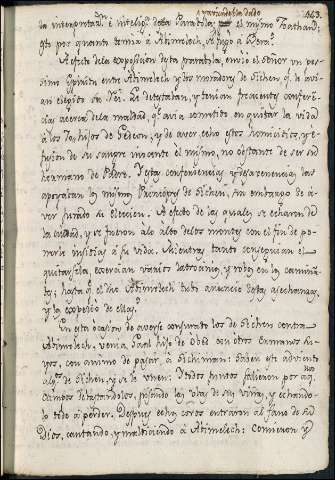 la interpretaz.n e intelig.a desta Parabola; el mismo Joatham;
este por quanto temia a Abimelech, se fugo a Bera.
A efecto dela exposicion desta parabola, envio el Señor un pes
simo espiritu entre Abimelech y los moradores de Sichen q.e le avian
elegido su Rei. Le detestaban, y tenian frecuentes conferen
cias acerca dela maldad, q.e avia cometido en quitar la vida
a los hijos de Gedeon, y de aver echo estos homicidios, y e
fusion de su sangre inocente el mismo, no obstante de ser su
hermano de Padre. Estas conferencias, y desavenencias las
apoyaban los mismos Principes de Sichen, sin embargo de a
ver jurado su eleccion. A efecto de las quales se echaron de
la ciudad, y se fueron alo alto delos montes con el fin de po
nerle insidias a su vida. Mientras tanto conseguian el
quitarsela, exercian varios latrocinios, y robos en los camin
tes; hasta q.e el dho Abimelech tubo anuncio destas asechanzas,
y la exposicion de ellas.
En esta ocasion de averse conjurado los de Sichen contra
Abimelech, venia Gaal hijo de Obed con otros Hermanos su
yos, con animo de pasar a Sichiman: Saben este adviento
alg.s de Sichen, y se le unen: I todos juntos salieron por aq.
Campos destruyendolos, pisando las Uvas de sus viñas, y echando
lo todo a perder. Despues echos coros entraron al fano de su
Dios, cantando, y maldiciendo a Abimelech: Comieron y